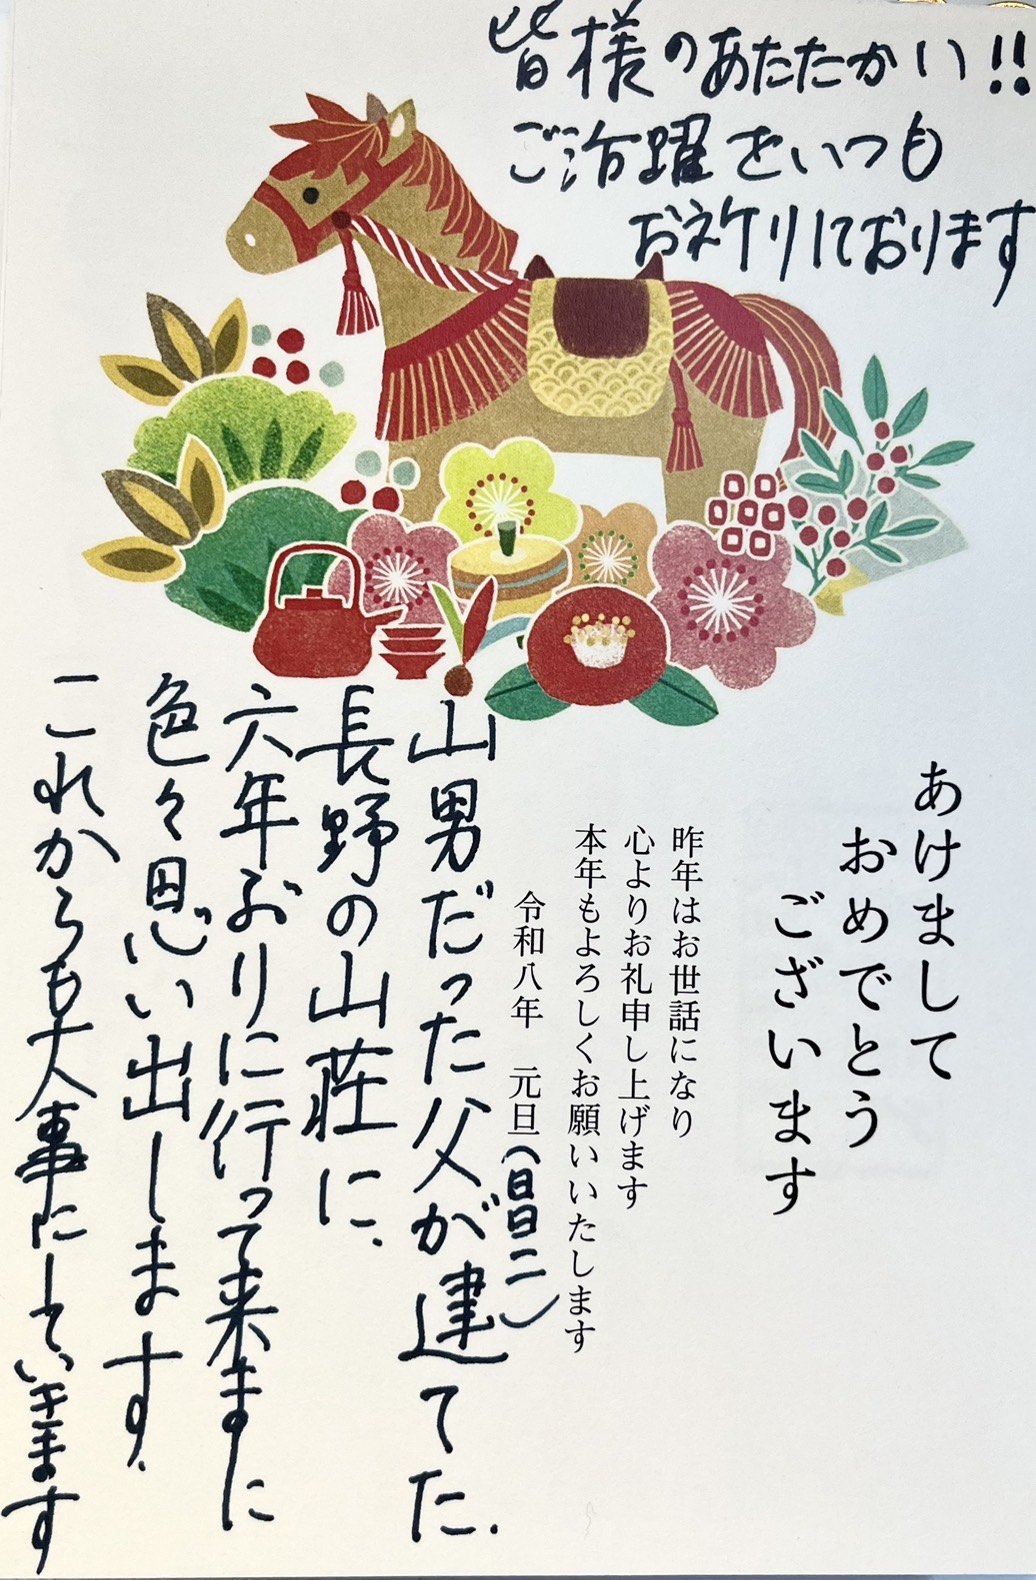 皆様のあたたかい!!
ご活躍をいつも
お祈りしております
あけまして
おめでとう
ございます
昨年はお世話になり
心よりお礼申し上げます
本年もよろしくお願いいたします
令和八年 元旦
山男だった父が建てた.
長野の山荘に.
六年ぶりに行って来ました
色々思い出します.
これからも大事にしていきます